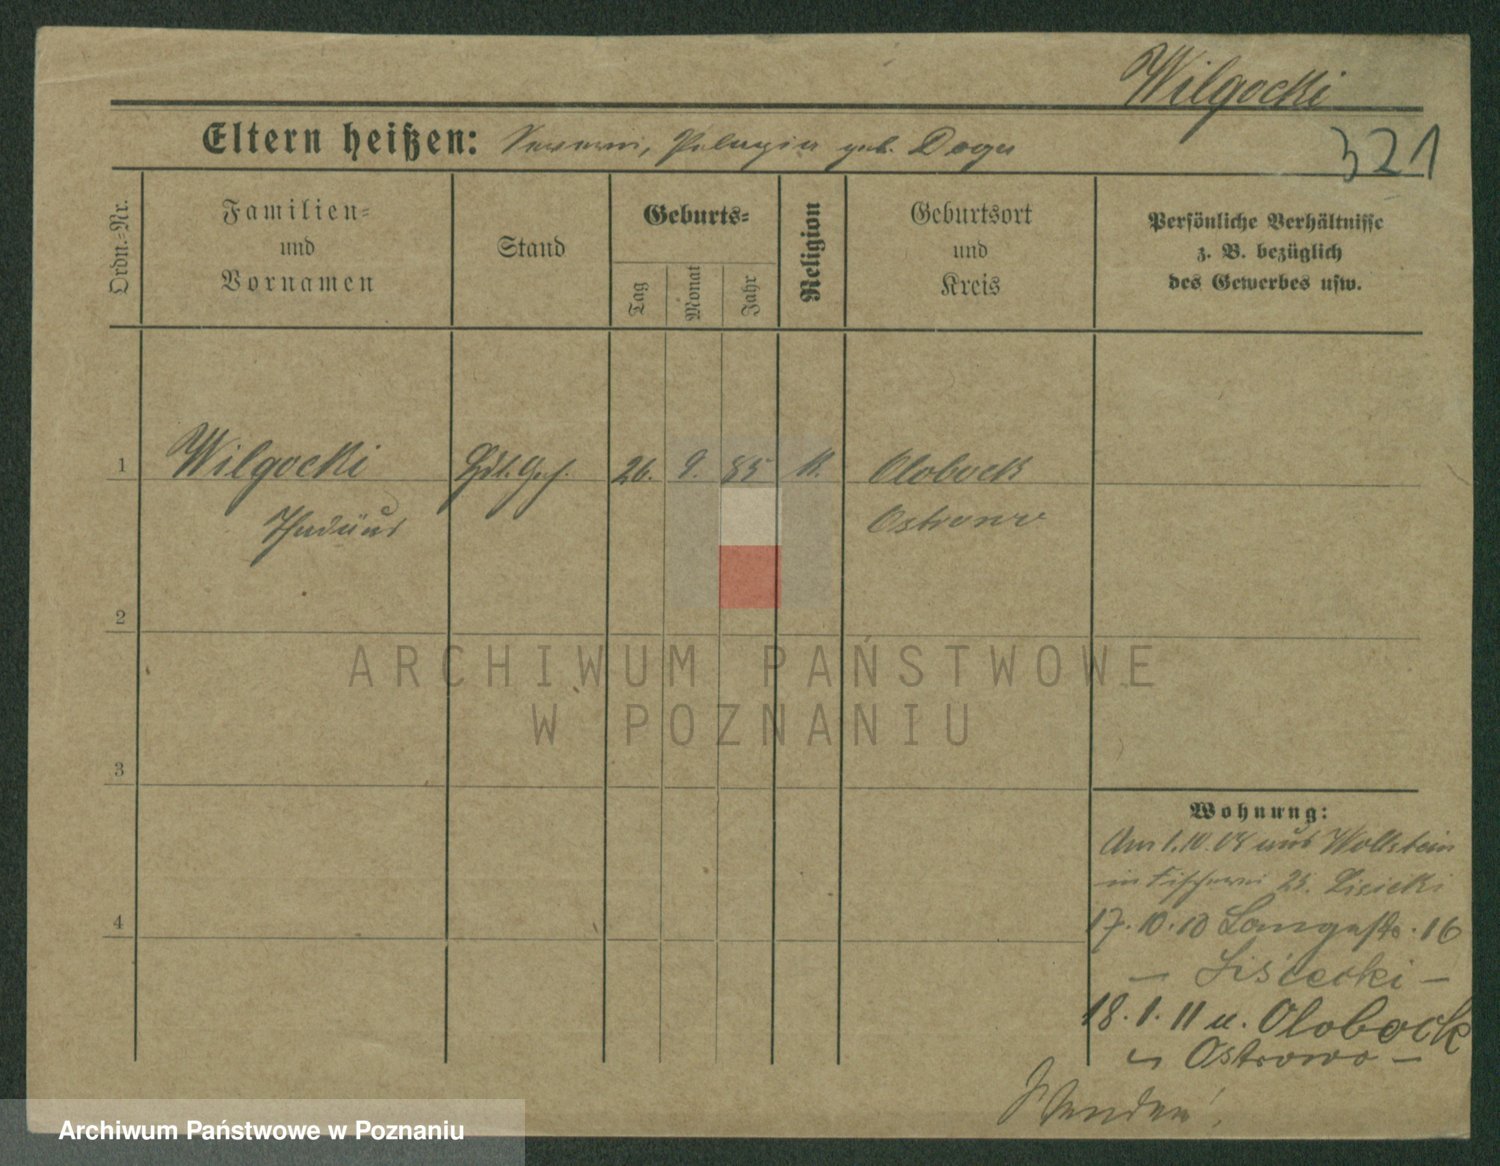 Wilgocki
Eltern heißen: Severin, Pelagia geb. Doga
321
Ordn.-Nr.
Familien-
und
Vornamen
Stand
Geburts-
Tag
Monat
Jahr
Religion
Geburtsort
und
Kreis
Persönliche Verhältnisse
z. B. bezüglich
des Gewerbes usw.
1
Wilgocki
Hdl. Geh.
26. 9. 85
K.
Olobock
Thadäus
Ostrowo
2
ARCHIWUM PAŃSTWOWE
W POZNANIU
3
Wohnung:
Am 1.10.08 aus Wollstein
in Fischerei 25. Lisiecki
4
17.10.10 Langestr. 16
— Lisiecki —
18.1.11 n. Olobock
Ostrowo —
Wenden!
Archiwum Państwowe w Poznaniu